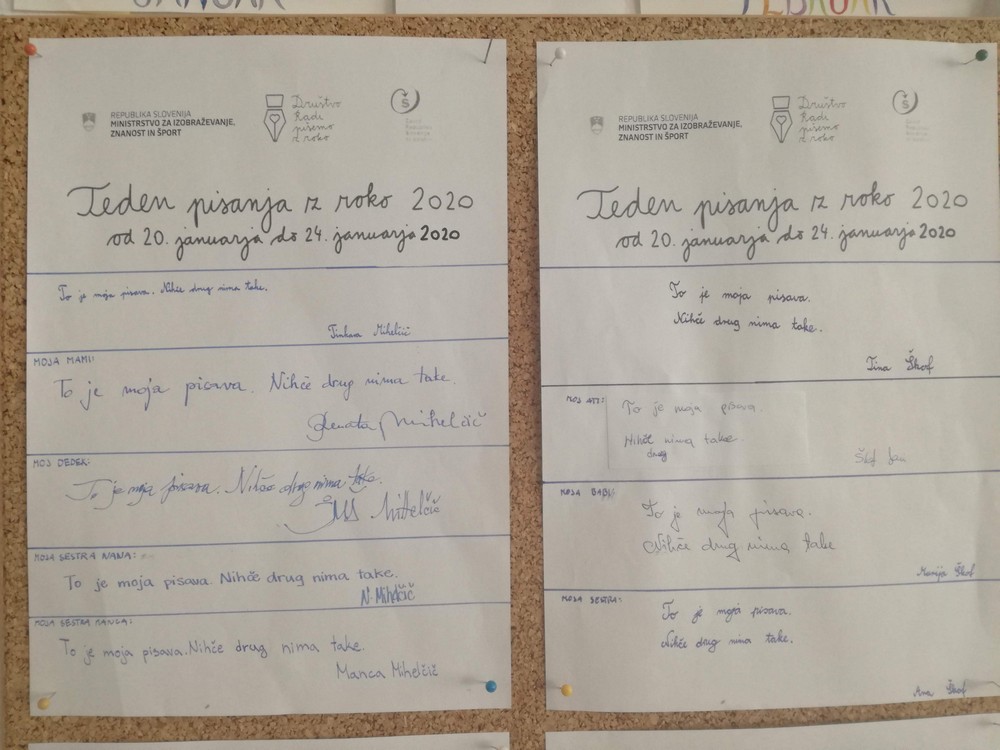 FEBRUAR
REPUBLIKA SLOVENIJA
MINISTRSTVO ZA IZOBRAŽEVANJE,
ZNANOST IN ŠPORT
Društvo
Radi
pišemo
z roko
Š
Teden pisanja z roko 2020
od 20. januarja do 24. januarja 2020
To je moja pisava. Nihče drug nima take.
Mihelčič
MOJA MAMI:
To je moja pisava. Nihče drug nima take.
Renata Mihelčič
MOJ DEDEK:
To je moja pisava. Nihče drug nima take.
Mihelčič
MOJA SESTRA NANA:
To je moja pisava. Nihče drug nima take.
N. Mihelčič
MOJA SESTRA MANCA:
To je moja pisava. Nihče drug nima take.
Manca Mihelčič
REPUBLIKA SLOVENIJA
MINISTRSTVO ZA IZOBRAŽEVANJE,
ZNANOST IN ŠPORT
Društvo
Radi
pišemo
z roko
Š
Teden pisanja z roko 2020
od 20. januarja do 24. januarja 2020
To je moja pisava.
Nihče drug nima take.
Tina Škof
MOJ ATI:
To je moja pisava
Nihče nima take.
drug
Škof Jan
MOJA BABI:
To je moja pisava.
Nihče drug nima take
Marija Škof
MOJA SESTRA:
To je moja pisava.
Nihče drug nima take.
Ana Škof